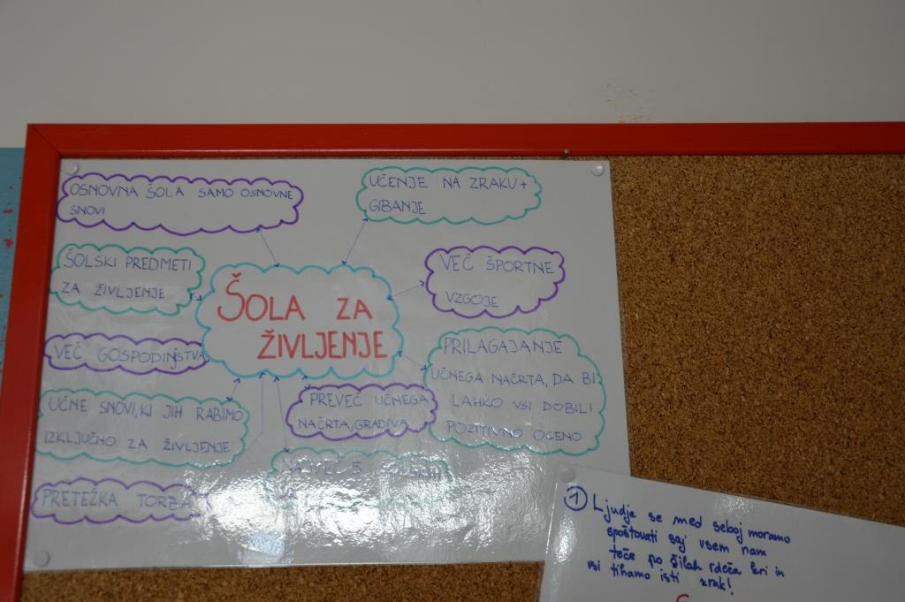 OSNOVNA ŠOLA SAMO OSNOVNE
SNOVI
UČENJE NA ZRAKU +
GIBANJE
ŠOLSKI PREDMETI
ZA ŽIVLJENJE
VEČ ŠPORTNE
VZGOJE
ŠOLA ZA
ŽIVLJENJE
VEČ GOSPODINJSTVA
PRILAGAJANJE
UČNEGA NAČRTA, DA BI
LAHKO VSI DOBILI
POZITIVNO OCENO
UČNE SNOVI, KI JIH RABIMO
IZKLJUČNO ZA ŽIVLJENJE
PREVEČ UČNEGA
NAČRTA, GRADIVA
PRETEŽKA TORBA
1 Ljudje se med seboj moramo
spoštovati saj vsem nam
teče po žilah rdeča kri in
vsi dihamo isti zrak!